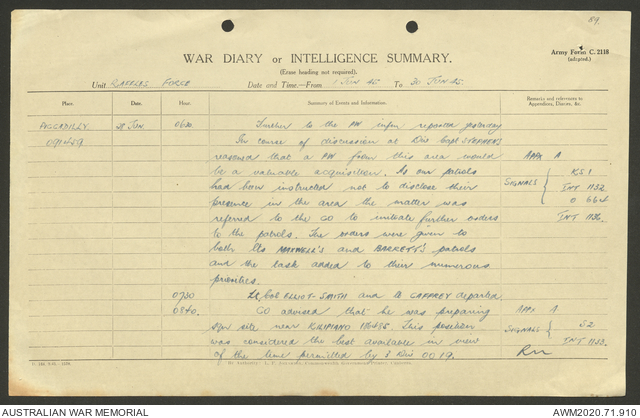 89.
WAR DIARY or INTELLIGENCE SUMMARY.
Army Form C. 2118
(adapted.)
(Erase heading not required).
Unit RAFFLES FORCE
Date and Time.—From 1 JUN 45 To 30 JUN 45.
Place. Date. Hour. Summary of Events and Information. Remarks and references to Appendices, Diaries, &c.
PICCADILLY 28 JUN 0630 Further to the PW infm reported yesterday
091459 In course of discussion at Div Capt STEPHENS
reasoned that a PW from this area would APPX A
be a valuable acquisition. As our patrols KS 1
had been instructed not to disclose their SIGNALS INT 1132
presence in the area the matter was O 664
referred to the CO to initiate further orders INT 1136.
to the patrols. The orders were given to
both Lts MAXWELL'S and BARRETT'S patrols
and the task added to their numerous
priorities.
0730 Lt Col ELLIOT-SMITH and Lt GAFFREY departed
0840. CO advised that he was preparing APPX A
site near 186486. This position SIGNALS 52
was considered the best available in view INT 1133.
of the time permitted by Div OO 19.
AUSTRALIAN WAR MEMORIAL
AWM2020.71.910